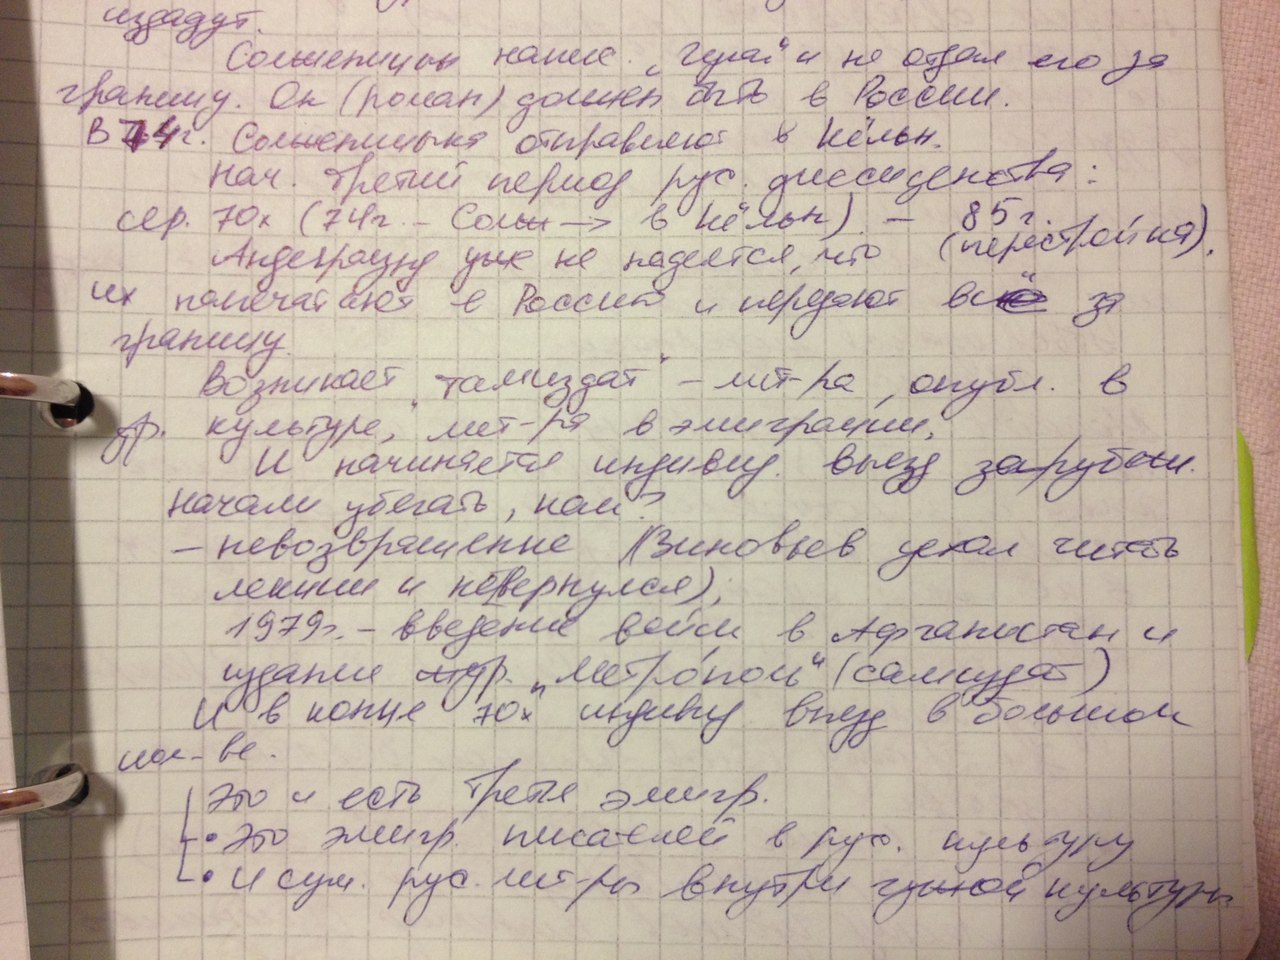 издадут.
Солженицын напис. „Гулаг" и не отдал его за
границу. Он (роман) должен быть в России.
В 74г. Солженицына отправляют в Кёльн.
Нач. третий период рус. диссиденства:
сер. 70х (74г. – Солж → в Кёльн) – 85г.
(перестройка).
Андеграунд уже не надеется, что
их напечатают в России и передают всё за
границу.
Возникает „тамиздат" – лит-ра, опубл. в
др. культуре, лит-ра в эмиграции.
И начинается индивид. выезд зарубеж.
Начали убегать, как?
– невозвращение (Зиновьев уехал читать
лекции и не вернулся),
1979г. – введение войск в Афганистан и
издание „Метрополь" (самиздат)
И в конце 70х индивид выезд в большом
кол-ве.
Это и есть третья эмигр.
• Это эмигр. писателей в рус. культуру
• И сущ. рус. лит-ры внутри чужой культуры